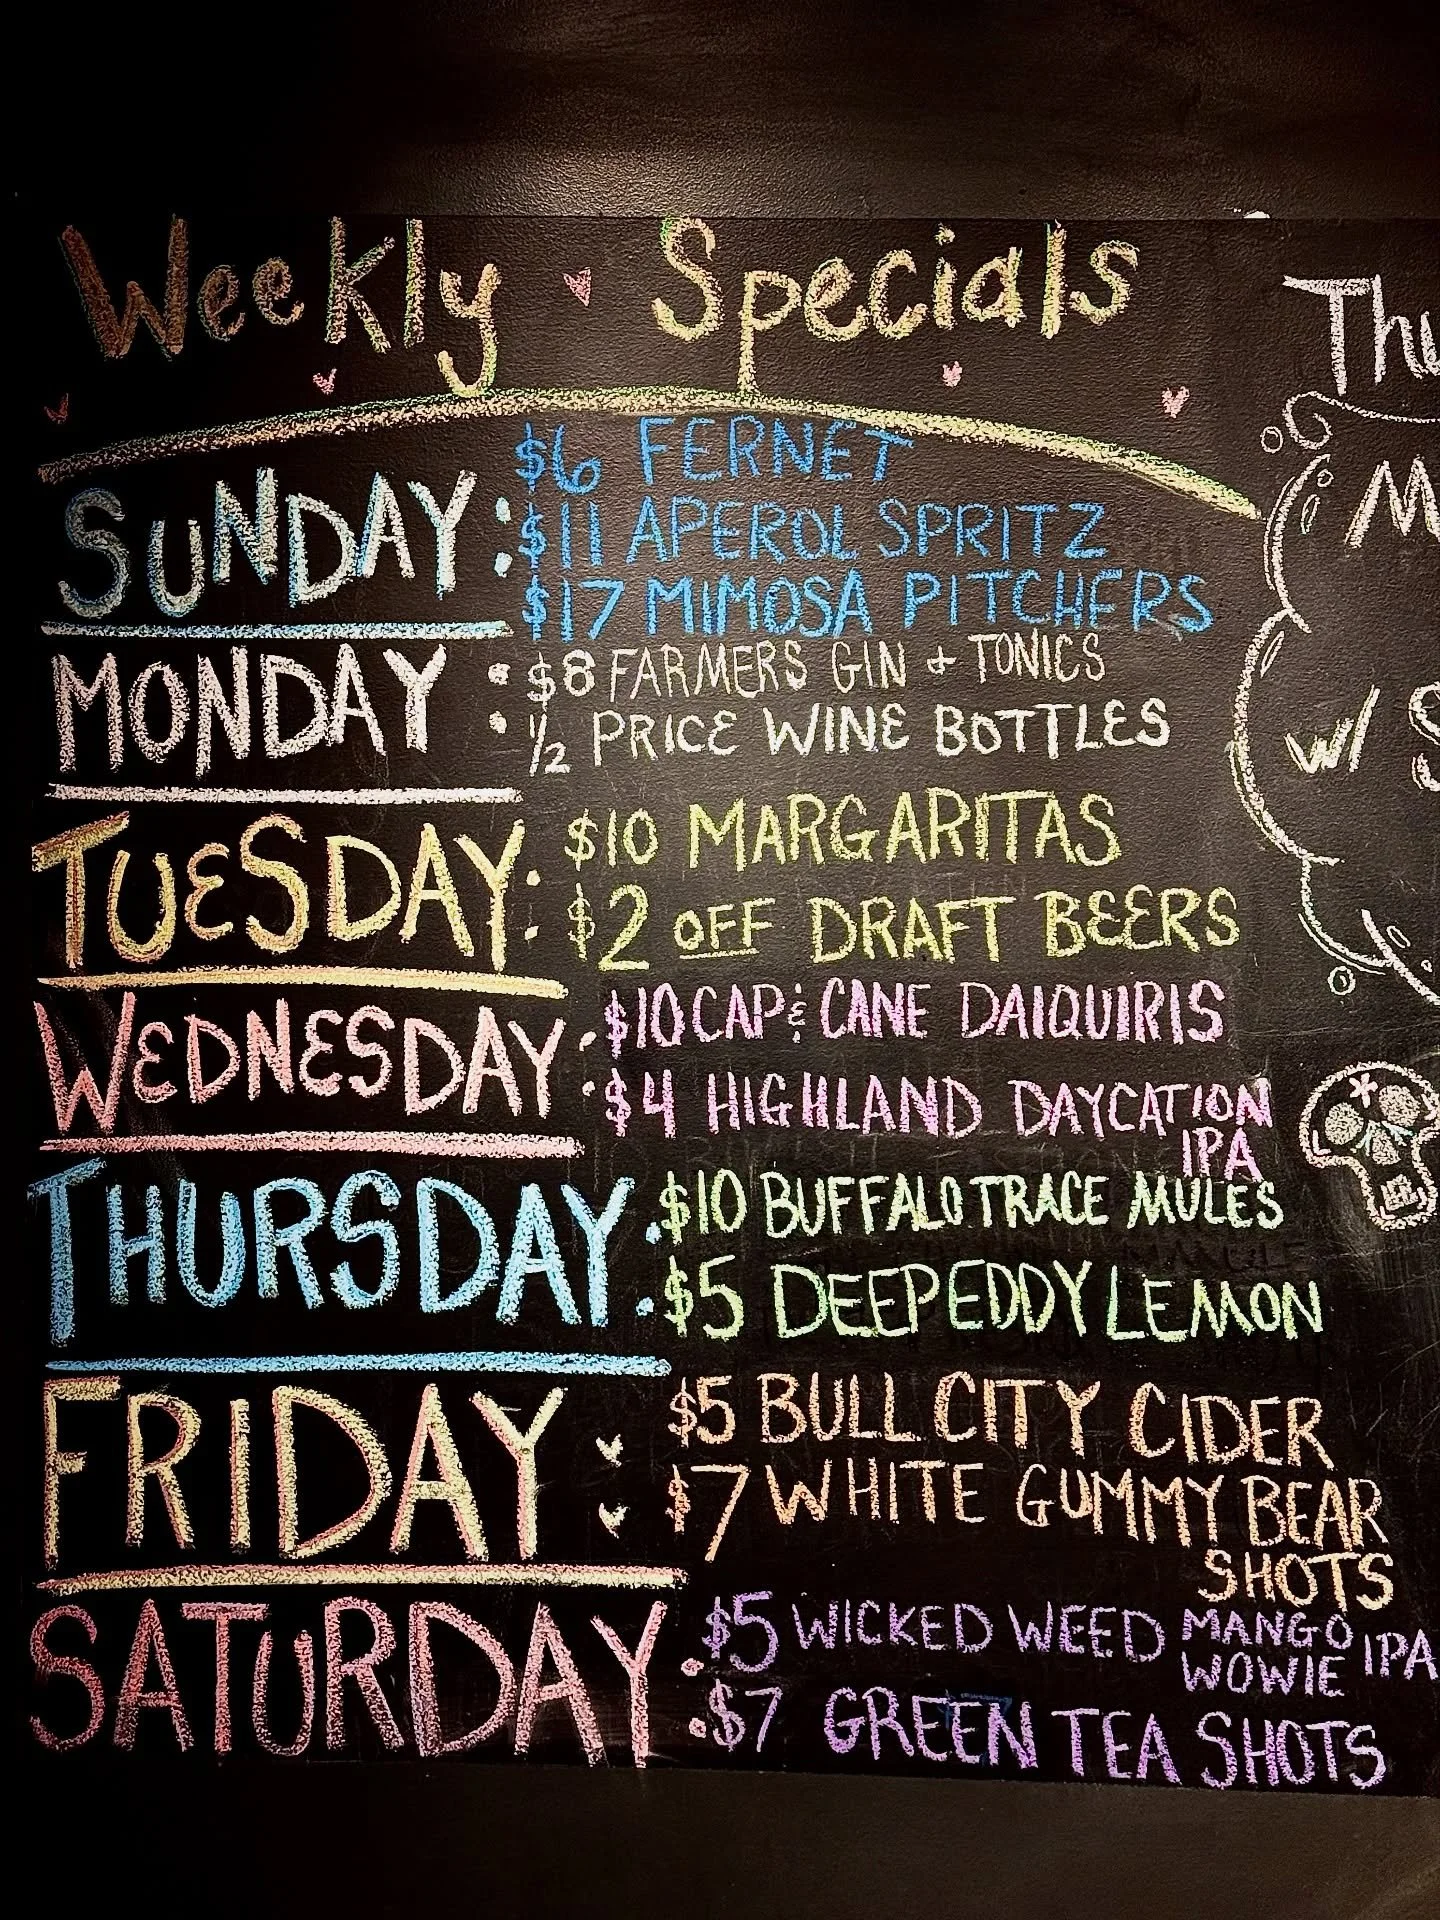 Weekly Specials
SUNDAY:
$6 FERNET
$11 APEROL SPRITZ
$17 MIMOSA PITCHERS
MONDAY:
$8 FARMERS GIN + TONICS
1/2 PRICE WINE BOTTLES
TUESDAY:
$10 MARGARITAS
$2 OFF DRAFT BEERS
WEDNESDAY:
$10 CAP & CANE DAIQUIRIS
$4 HIGHLAND DAYCATION
IPA
THURSDAY:
$10 BUFFALO TRACE MULES
$5 DEEP EDDY LEMON
FRIDAY:
$5 BULL CITY CIDER
$7 WHITE GUMMY BEAR
SHOTS
SATURDAY:
$5 WICKED WEED MANGO WOWIE IPA
$7 GREEN TEA SHOTS
Thu
M
w/ S